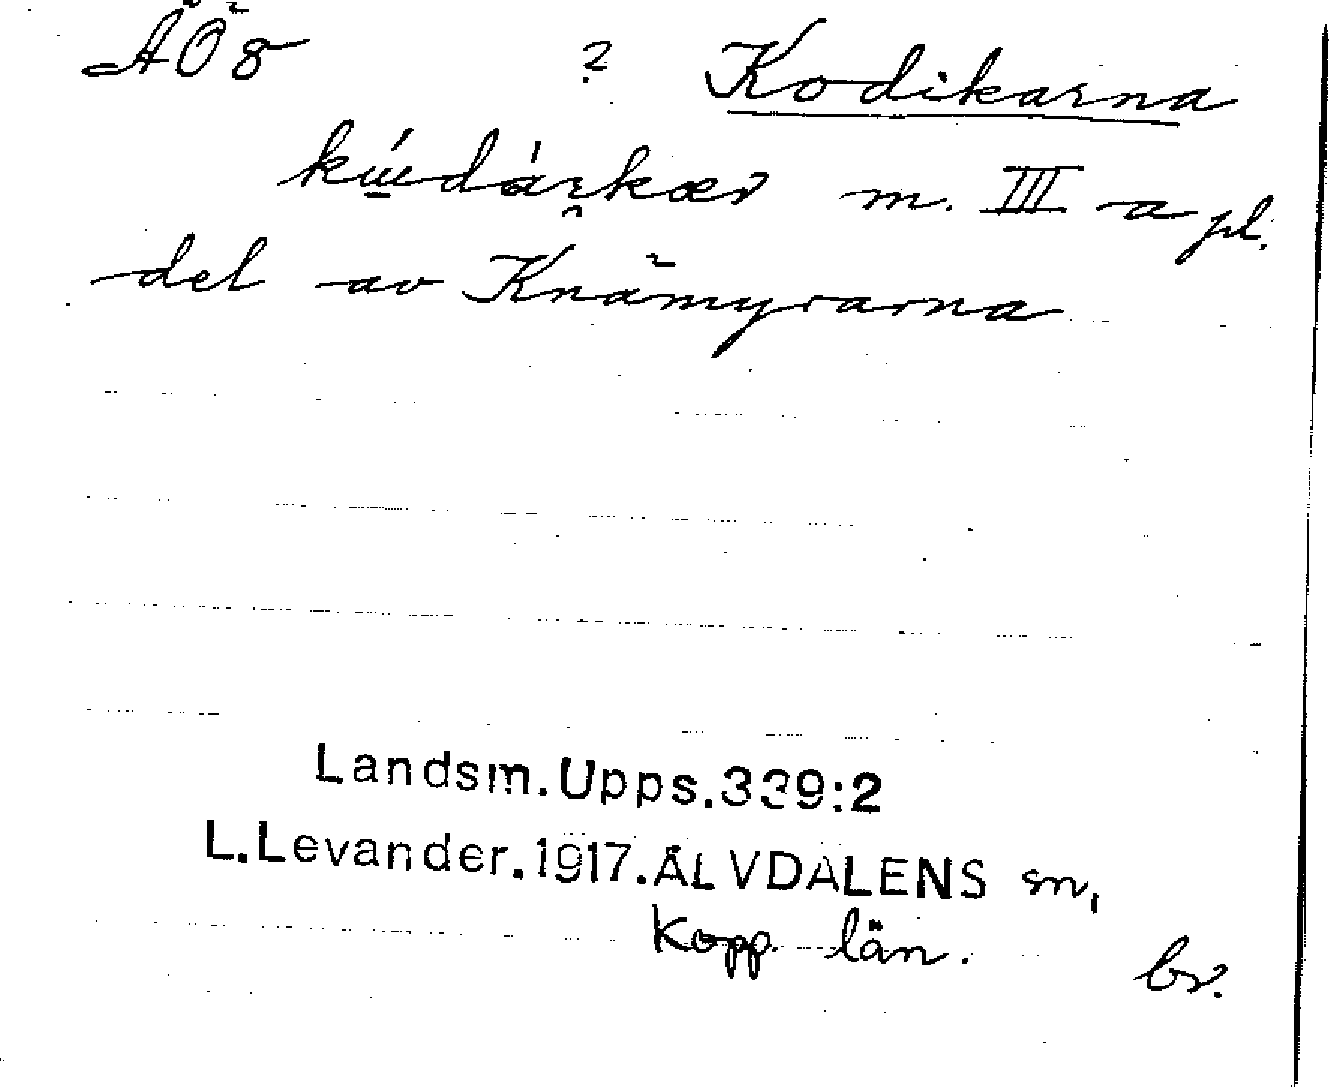 ÄÖ8 ? Kodikarna
m. III a pl.
del av Knämyrarna
Landsm.Upps.339:2
L.Levander.1917.ÄLVDALENS sn,
Kopp. län.
br.